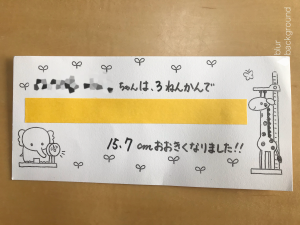 ちゃんは、3ねんかんで
15.7cmおおきくなりました!!
blur
background